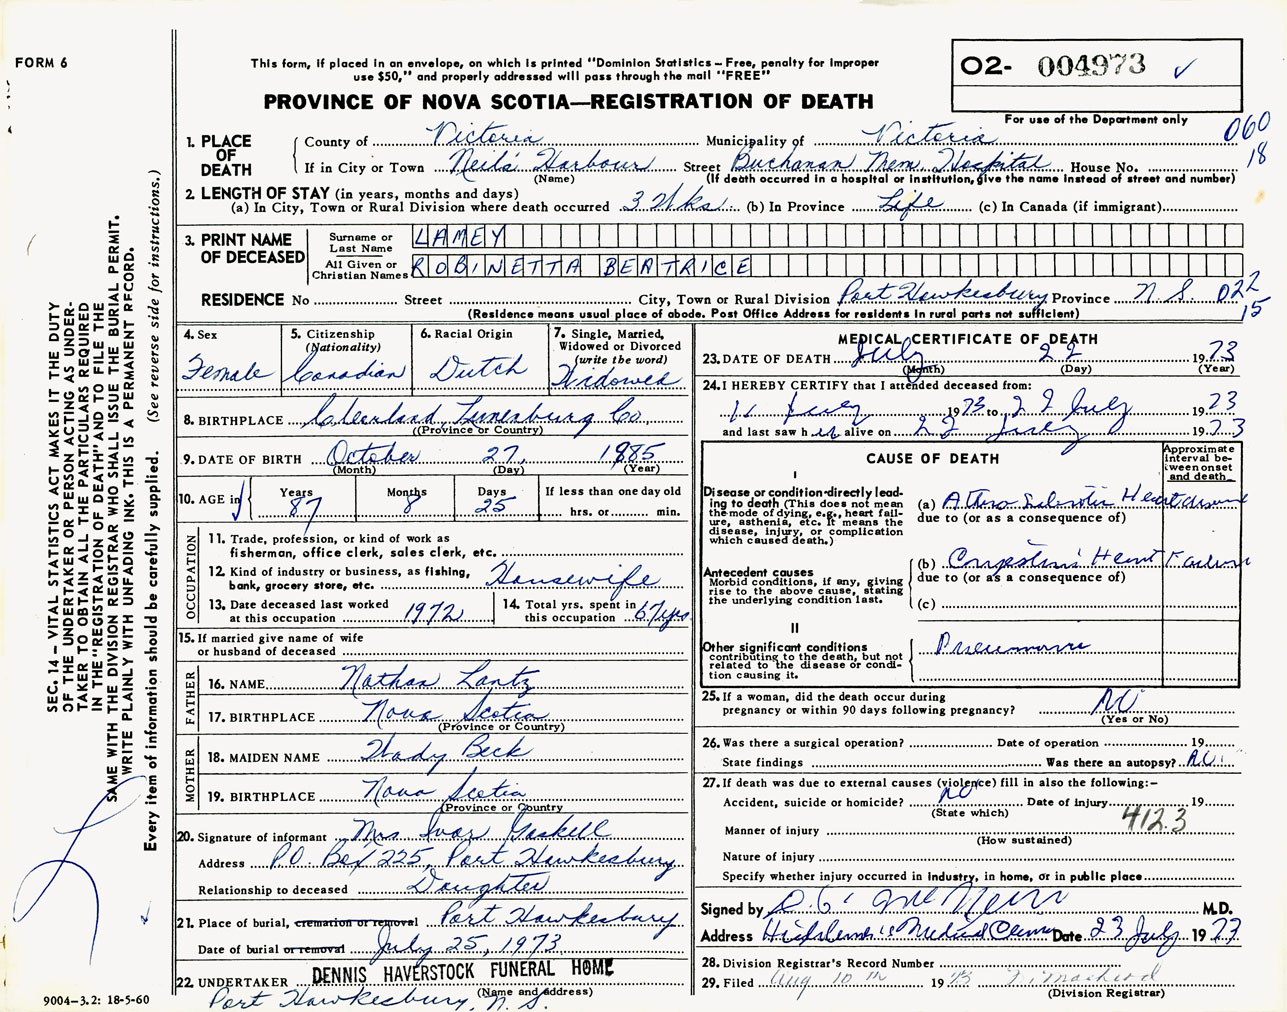 FORM 6
This form, if placed in an envelope, on which is printed "Dominion Statistics – Free, penalty for improper
use $50," and properly addressed will pass through the mail "FREE"
PROVINCE OF NOVA SCOTIA—REGISTRATION OF DEATH
O2- 004973 ✓
For use of the Department only
060
18
1. PLACE OF DEATH
County of Victoria Municipality of Victoria
If in City or Town Neil's Harbour Street Buchanan Mem. Hospital House No.
(Name) (If death occurred in a hospital or institution, give the name instead of street and number)
2. LENGTH OF STAY (in years, months and days)
(a) In City, Town or Rural Division where death occurred 3 Wks. (b) In Province Life (c) In Canada (if immigrant)
3. PRINT NAME OF DECEASED
Surname or Last Name LAMEY
All Given or Christian Names ROBINETTA BEATRICE
RESIDENCE No Street City, Town or Rural Division Port Hawkesbury Province N.S. 022
15
(Residence means usual place of abode. Post Office Address for residents in rural parts not sufficient)
4. Sex
Female
5. Citizenship
(Nationality)
Canadian
6. Racial Origin
Dutch
7. Single, Married,
Widowed or Divorced
(write the word)
Widowed
8. BIRTHPLACE Lunenburg Co.
(Province or Country)
9. DATE OF BIRTH October 27, 1885
(Month) (Day) (Year)
10. AGE in Years 87 Months 8 Days 25 If less than one day old
hrs. or min.
OCCUPATION
11. Trade, profession, or kind of work as
fisherman, office clerk, sales clerk, etc.
12. Kind of industry or business, as fishing,
bank, grocery store, etc. Housewife
13. Date deceased last worked
at this occupation 1972
14. Total yrs. spent in
this occupation 67 yrs.
15. If married give name of wife
or husband of deceased
FATHER
16. NAME Nathan Lantz
17. BIRTHPLACE Nova Scotia
(Province or Country)
MOTHER
18. MAIDEN NAME Beck
19. BIRTHPLACE Nova Scotia
(Province or Country
20. Signature of informant Mrs Ivor Gaskell
Address P.O. Box 225, Port Hawkesbury
Relationship to deceased Daughter
21. Place of burial, cremation or removal Port Hawkesbury
Date of burial or removal July 25, 1973
22. UNDERTAKER DENNIS HAVERSTOCK FUNERAL HOME
(Name and Address)
Port Hawkesbury, N.S.
MEDICAL CERTIFICATE OF DEATH
23. DATE OF DEATH July 22 1973
(Month) (Day) (Year)
24. I HEREBY CERTIFY that I attended deceased from:
11 July 1973 to 22 July 1973
and last saw her alive on 22 July 1973
CAUSE OF DEATH
Approximate
interval be-
tween onset
and death
I
Disease or condition directly lead-
ing to death (This does not mean
the mode of dying, e.g., heart fail-
ure, asthenia, etc. It means the
disease, injury, or complication
which caused death.)
(a) Heart disease
due to (or as a consequence of)
Antecedent causes
Morbid conditions, if any, giving
rise to the above cause, stating
the underlying condition last.
(b) Congestive Heart Failure
due to (or as a consequence of)
(c)
II
Other significant conditions
contributing to the death, but not
related to the disease or condi-
tion causing it.
Pneumonia
25. If a woman, did the death occur during
pregnancy or within 90 days following pregnancy? NO
(Yes or No)
26. Was there a surgical operation? Date of operation 19
State findings Was there an autopsy? NO.
27. If death was due to external causes (violence) fill in also the following:–
Accident, suicide or homicide? NO Date of injury 19
(State which)
412.3
Manner of injury
(How sustained)
Nature of injury
Specify whether injury occurred in industry, in home, or in public place
Signed by M.D.
Address Medical Date 23 July 1973
28. Division Registrar's Record Number
29. Filed Aug 10 th 1973
(Division Registrar)
SEC. 14 – VITAL STATISTICS ACT MAKES IT THE DUTY
OF THE UNDERTAKER OR PERSON ACTING AS UNDER-
TAKER TO OBTAIN ALL THE PARTICULARS REQUIRED
IN THE "REGISTRATION OF DEATH" AND TO FILE THE
SAME WITH THE DIVISION REGISTRAR WHO SHALL ISSUE THE BURIAL PERMIT.
WRITE PLAINLY WITH UNFADING INK. THIS IS A PERMANENT RECORD.
Every item of information should be carefully supplied. (See reverse side for instructions.)
9004–3.2: 18-5-60